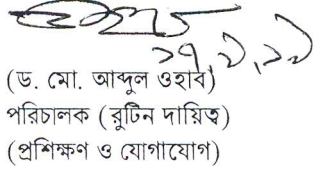 ১৭.১.১৯
(ড. মো. আব্দুল ওহাব)
পরিচালক (রুটিন দায়িত্ব)
(প্রশিক্ষণ ও যোগাযোগ)